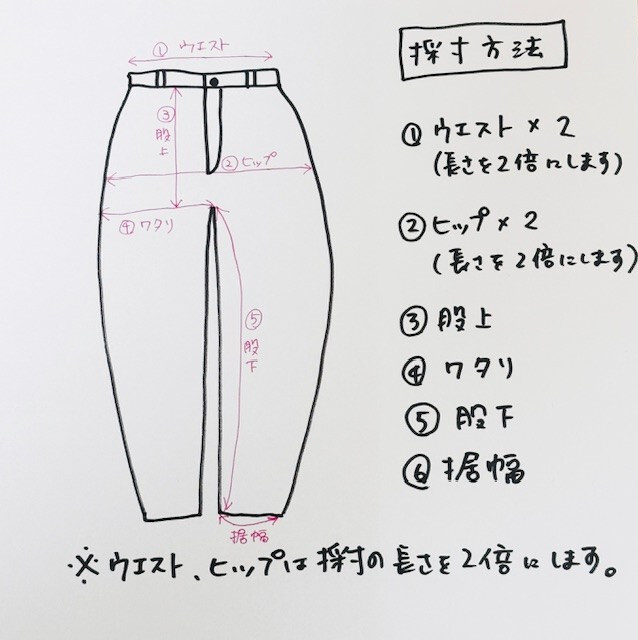 ① ウエスト
採寸方法
③股上
② ヒップ
④ワタリ
⑤股下
据幅
① ウエスト × 2
(長さを2倍にします)
② ヒップ × 2
(長さを2倍にします)
③ 股上
④ ワタリ
⑤ 股下
⑥ 据幅
※ウエスト、ヒップは採寸の長さを2倍にします。